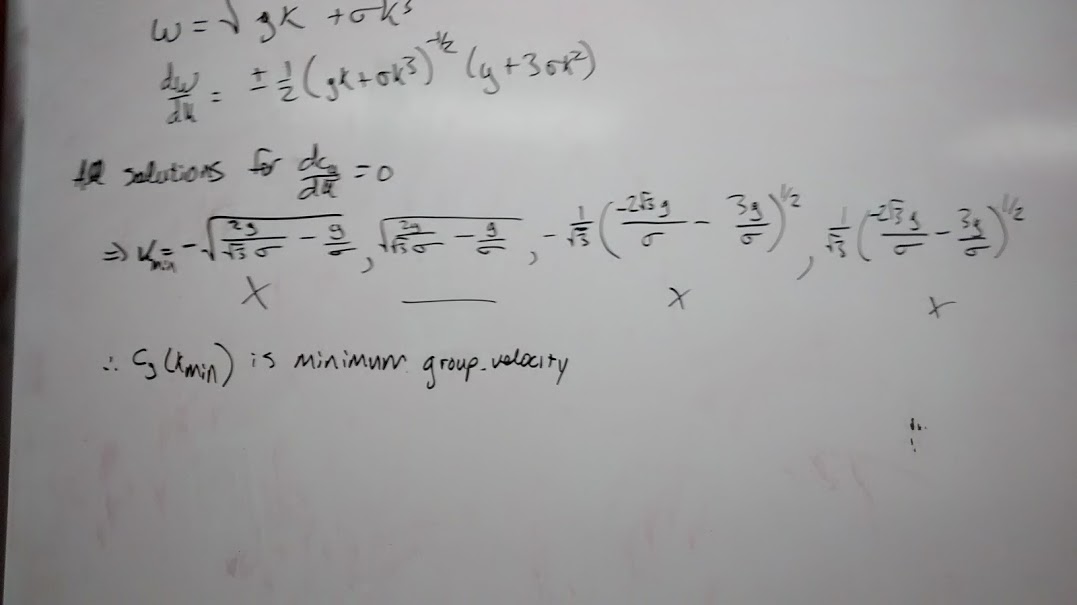 ω = √gk + σk³
dω/dk = ± 1/2 (gk + σk³)^-1/2 (g + 3σk²)
solutions for dc_g/dk = 0
⇒ k_min = -√(2g/(√3 σ) - g/σ), √(2g/(√3 σ) - g/σ), -1/√3 (-2√3 g/σ - 3g/σ)^1/2, 1/√3 (-2√3 g/σ - 3g/σ)^1/2
X X X
∴ C_g(k_min) is minimum group velocity